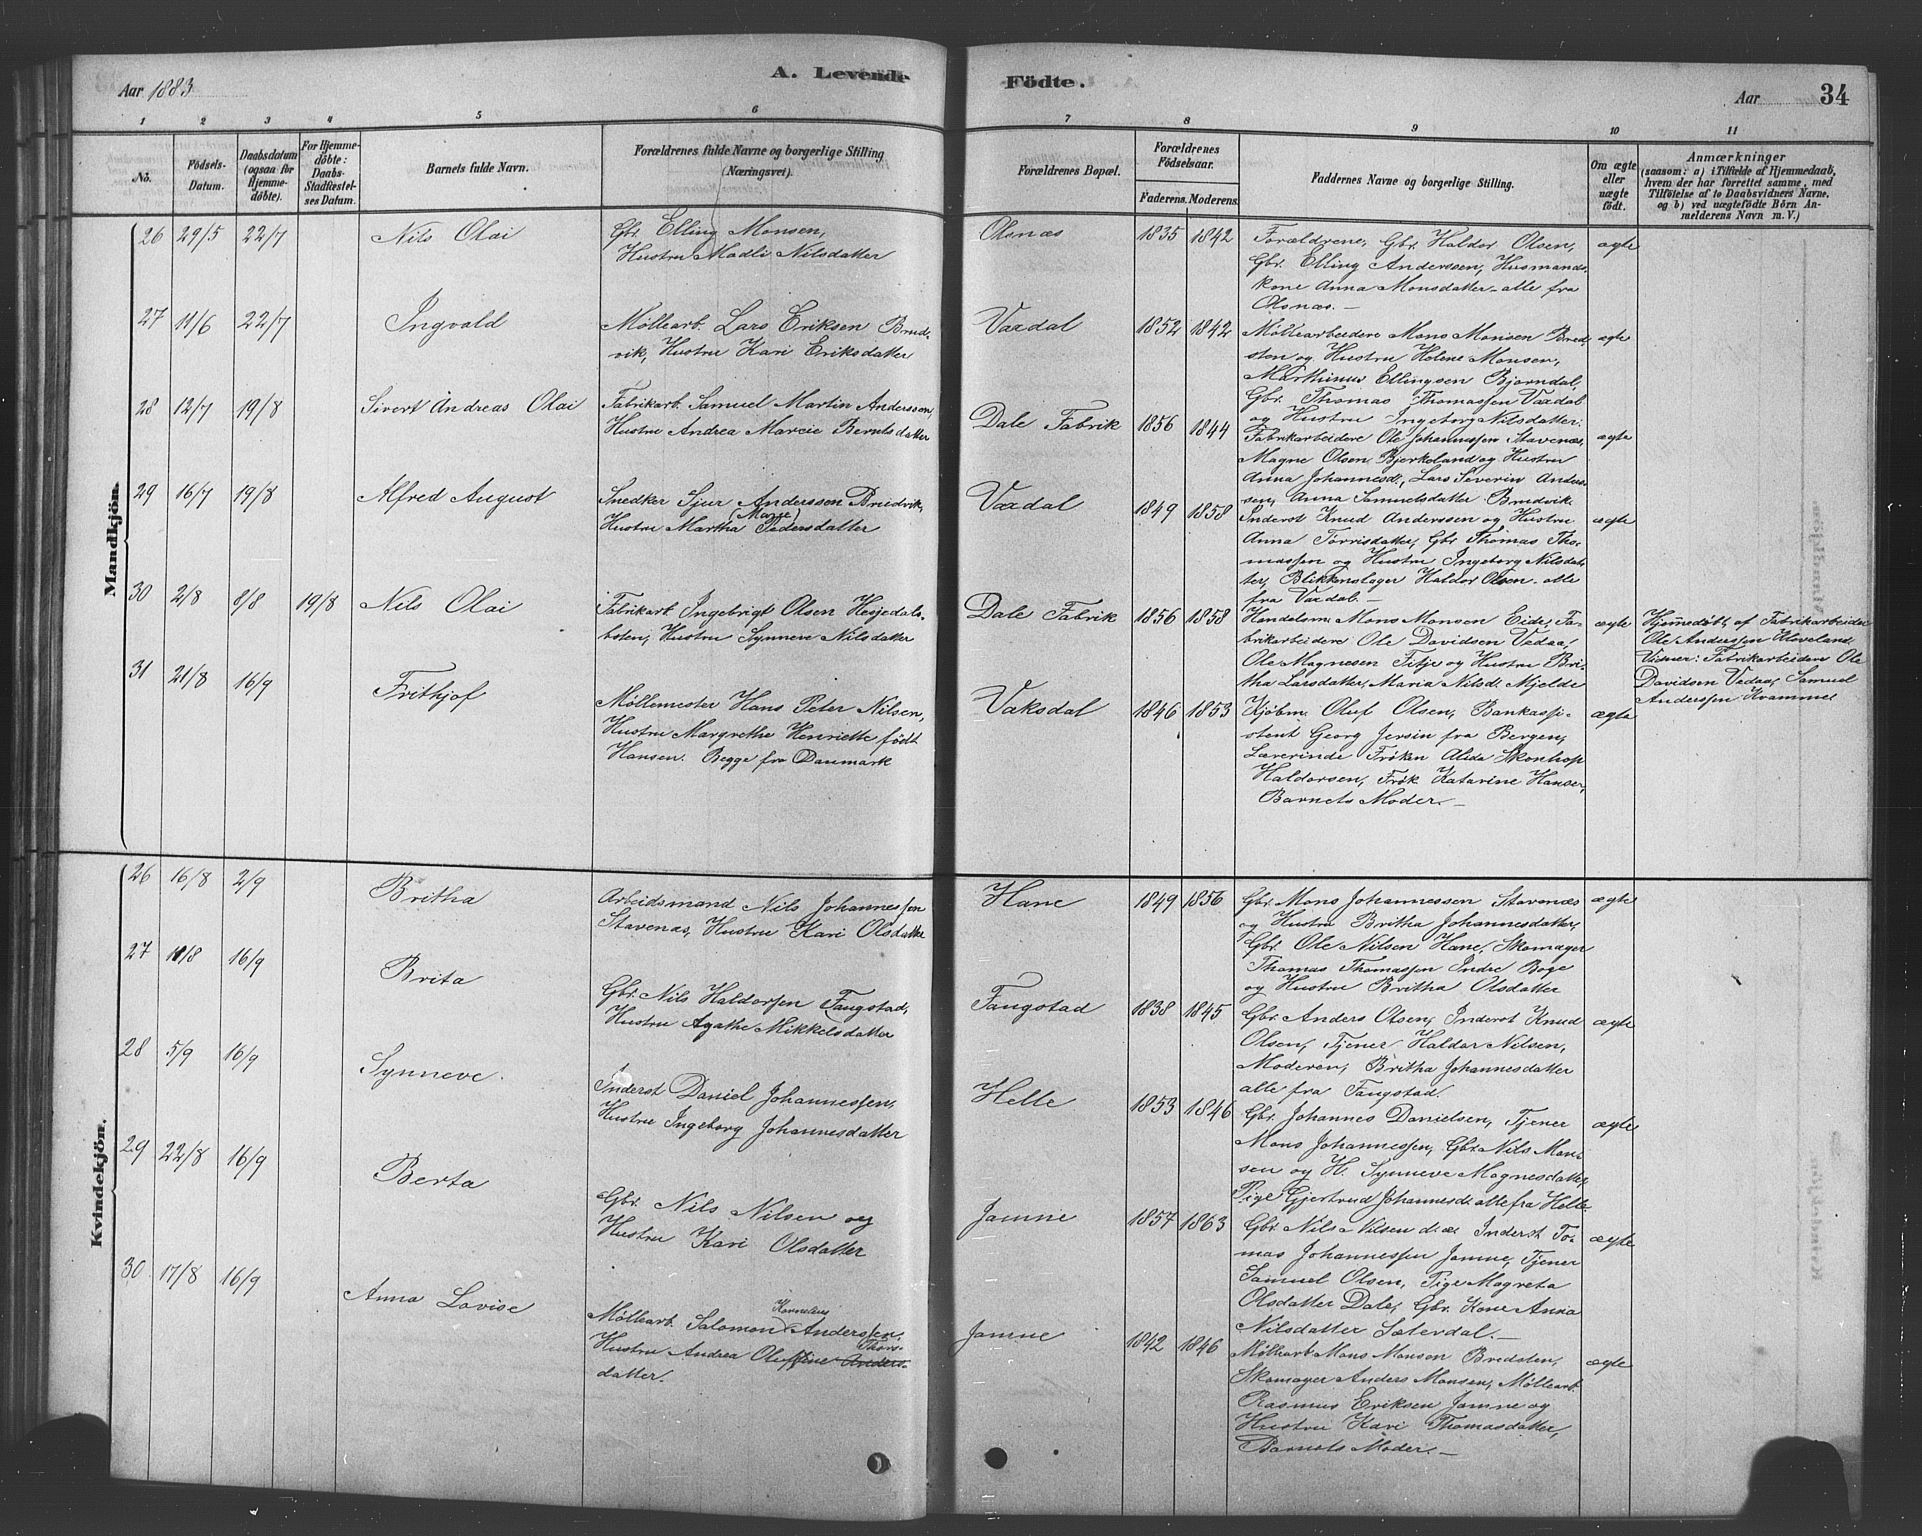 Aar 1883
A. Levende
Födte.
Aar
34
1 2 3 4 5 6 7 8 9 10 11
No.
Födsels-
Datum.
Daabsdatum
(ogsaa for
Hjemme-
döbte).
For Hjemme-
döbte:
Daabs-
Stadfæstel-
ses Datum.
Barnets fulde Navn.
Forældrenes fulde Navne og borgerlige Stilling
(Næringsvei).
Forældrenes Bopæl.
Forældrenes
Födselsaar.
Faderens. Moderens.
Faddernes Navne og borgerlige Stilling.
Om ægte
eller
uægte
födt.
Anmærkninger
(saasom: a) i Tilfælde af Hjemmedaab,
hvem der har forrettet samme, med
Tilföielse af to Daabsvidners Navne,
og b) ved uægtefödte Börn An-
melderens Navn m. V.)
Mandkjön.
26 29/5 22/7 Nils Olai
Gbr. Elling Monsen,
Hustru Madli Nilsdatter
Olsnæs 1835 1842
Forældrene, Gbr. Haldor Olsen,
Gbr. Elling Anderssen, Husmands-
kone Anna Monsdatter - alle fra
Olsnæs. -
ægte
27 11/6 22/7 Ingvald
Møllearb. Lars Eriksen Brud-
vik, Hustru Kari Eriksdatter
Vaxdal 1852 1842
Møllearbeidere Mons Monsen Bred-
sten og Hustru Helene Monsen,
Marthinus Ellingsen Bjørndal,
Gbr. Thomas Thomassen Vaxdal
og Hustru Ingeborg Nilsdatter.
ægte
28 12/7 19/8 Sivert Andreas Olai
Fabrikarb. Samuel Martin Anderssen
Hustru Andrea Marcie Berntsdatter
Dale Fabrik 1856 1844
Fabrikarbeidere Ole Johannessen Stavenæs,
Magne Olsen Bjerkeland og Hustru
Anna Johannesd., Lars Severin Anders-
sen, Anna Samuelsdatter Brudvik.
ægte
29 16/7 19/8 Alfred August
Snedker Sjur Anderssen Bruvik,
Hustru Martha (Marie) Pedersdatter
Vaxdal 1849 1858
Inderst Knud Anderssen og Hustru
Anna Torrisdatter, Gbr. Thomas Tho-
massen og Hustru Ingeborg Nilsdat-
ter, Blikkenslager Haldor Olsen - alle
fra Vaxdal. -
ægte
30 2/8 8/8 19/8 Nils Olai
Fabrikarb. Ingebrigt Olsen Hesjedals-
bolen, Hustru Synneve Nilsdatter
Dale Fabrik 1856 1858
Handelsm. Mons Monsen Eide, Fa-
brikarbeidere Ole Davidsen Vedaa,
Ole Magnesen Fitje og Hustru Bri-
tha Larsdatter, Maria Nilsd. Mjelde
ægte
Hjemmedøbt af Fabrikarbeider
Ole Anderssen Kleveland
Vidner: Fabrikarbeidere Ole
Davidsen Vedaa, Samuel
Anderssen Kvammes
31 21/8 16/9 Frithjof
Møllemester Hans Peter Nilsen,
Hustru Margrethe Henriette født
Hansen. Begge fra Danmark
Vaksdal 1846 1853
Kjøbm. Oluf Olsen, Bankassi-
stent Georg Jersin fra Bergen,
Lærerinde Frøken Alida Skonhop
Haldorsen, Frøk. Katarine Hansen,
Barnets Moder. -
ægte
Kvindekjön.
26 16/8 2/9 Britha
Arbeidsmand Nils Johannessen
Stavenæs, Hustru Kari Olsdatter
Hane 1849 1856
Gbr. Mons Johannessen Stavenæs
og Hustru Britha Johannesdatter,
Gbr. Ole Nilsen Hane, Skomager
Thomas Thomassen Indre Boge
og Hustru Britha Olsdatter
ægte
27 11/8 16/9 Brita
Gbr. Nils Haldorssen Fangstad,
Hustru Agathe Mikkelsdatter
Fangstad 1838 1845
Gbr. Anders Olsen, Inderst Knud
Olsen, Tjener Haldor Nilsen,
Moderen, Britha Johannesdatter
alle fra Fangstad.
ægte
28 5/9 16/9 Synneve.
Inderst Daniel Johannessen,
Hustru Ingeborg Johannesdatter
Helle 1853 1846
Gbr. Johannes Danielsen, Tjener
Mons Johannessen, Gbr. Nils Mon-
sen og H. Synneve Magnesdatter,
Pige Gjertrud Johannesd. alle fra Helle
ægte
29 22/8 16/9 Berta
Gbr. Nils Nilsen og
Hustru Kari Olsdatter
Jamne 1857 1863
Gbr. Nils Nilsen d. æ. Inderst To-
mas Johannessen Jamne, Tjener
Samuel Olsen, Pige Magreta
Olsdatter Dale, Gbr. Kone Anna
Nilsdatter Sæterdal. -
ægte
30 17/8 16/9 Anna Lovise
Møllearb. Salomon Kornelius Anderssen,
Hustru Andrea Oluffine Anders- Thors-
datter.
Jamne 1842 1846
Møllearb. Mons Monsen Bredsten,
Skomager Anders Monsen, Møllearb.
Rasmus Eriksen Jamne og
Hustru Kari Thomasdatter,
Barnets Moder. -
ægte